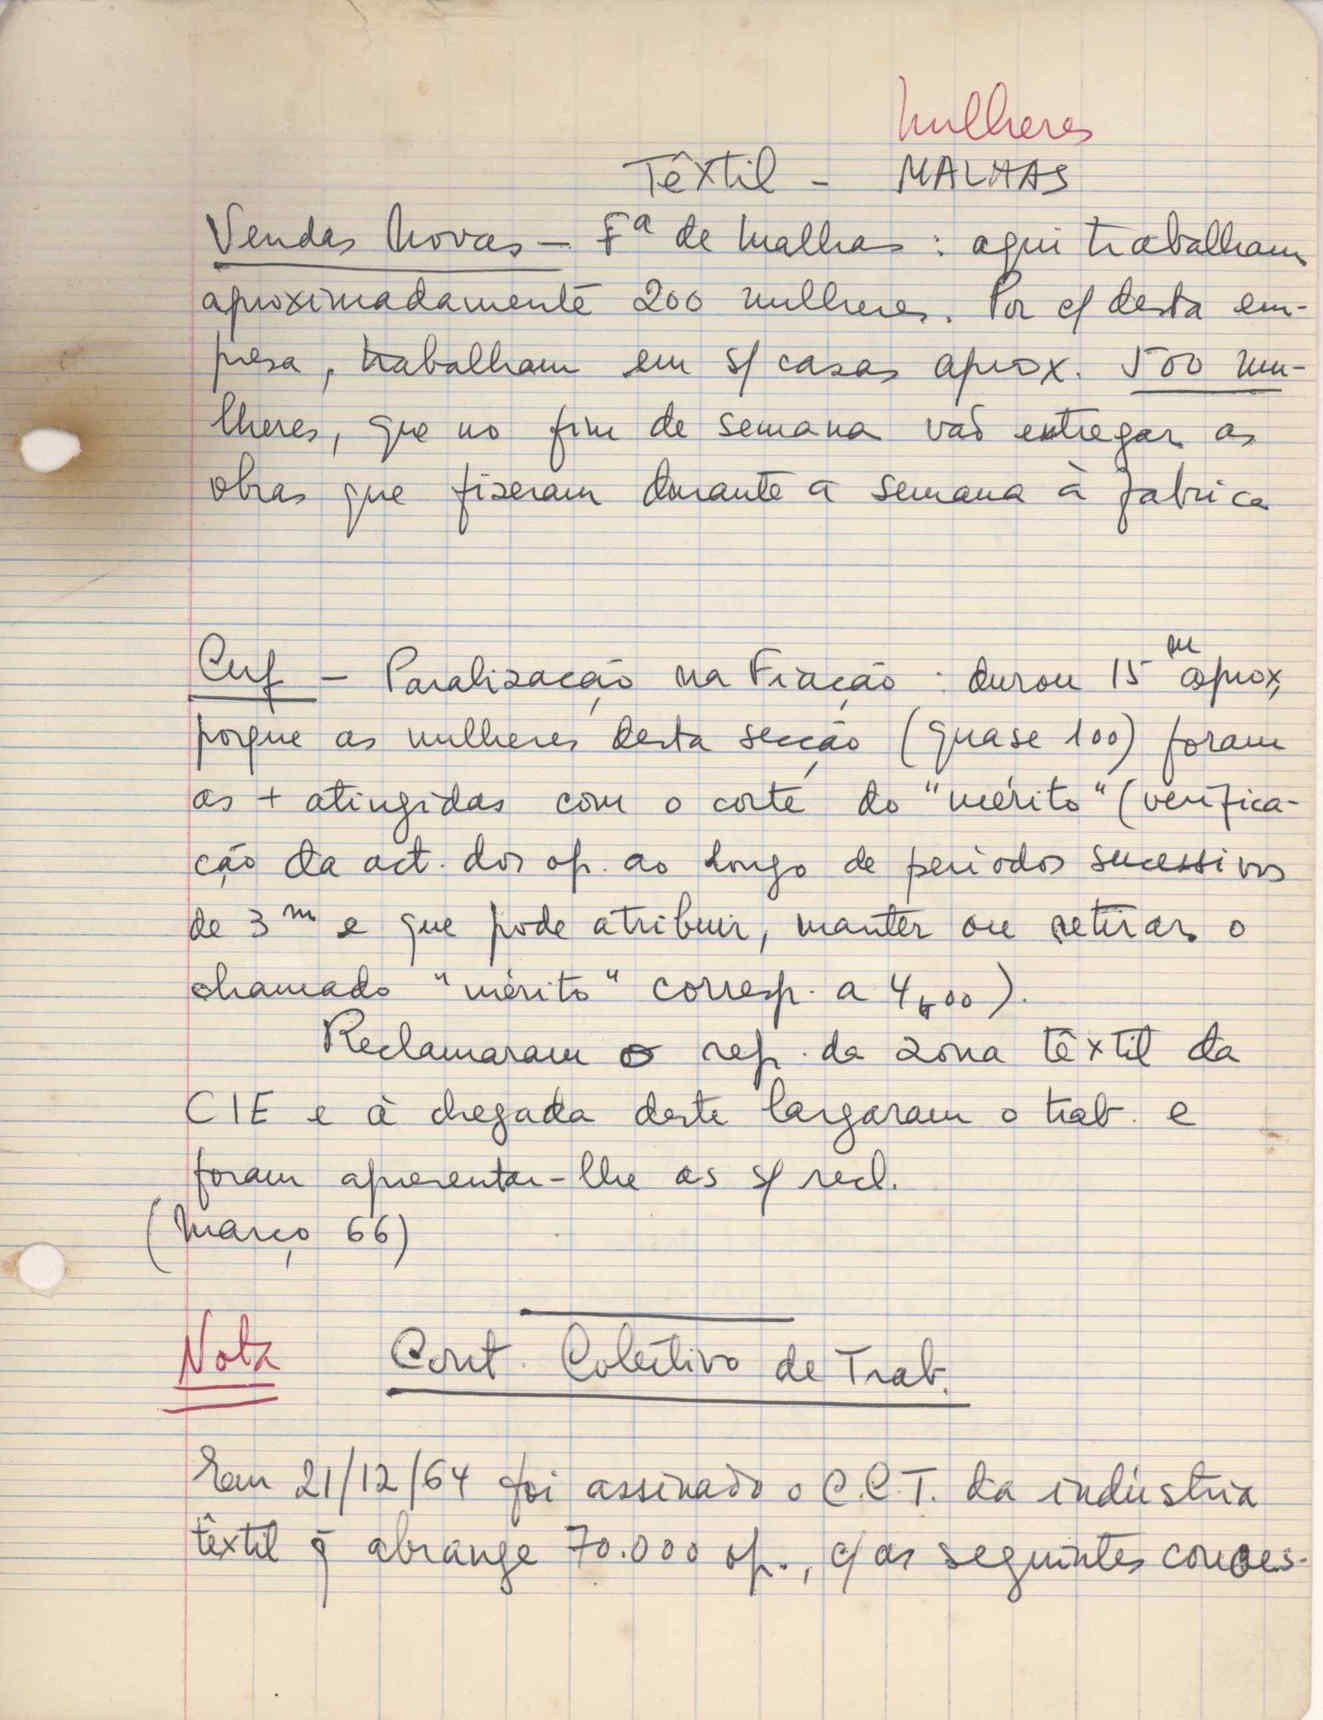 Mulheres
Têxtil - MALHAS
Vendas Novas - Fª de Malhas : aqui trabalham
aproximadamente 200 mulheres. Por c/ desta em-
presa, trabalham em s/ casas aprox. 500 mu-
lheres, que no fim de semana vão entregar as
obras que fizeram durante a semana à fabrica
Cuf - Paralização na Fiação : durou 15 m aprox,
porque as mulheres desta secção (quase 100) foram
as + atingidas com o corte do "mérito" (verifica-
ção da act. dos op. ao longo de periodos sucessivos
de 3 m e que pode atribuir, manter ou retirar o
chamado "mérito" corresp. a 4$00).
Reclamaram o rep. da zona têxtil da
CIE e à chegada deste largaram o trab. e
foram apresentar-lhe as s/ recl.
(Março 66)
Nota Cont. Coletivo de Trab.
Em 21/12/64 foi assinado o C.C.T. da indústria
têxtil q̃ abrange 70.000 op., c/ as seguintes conces-